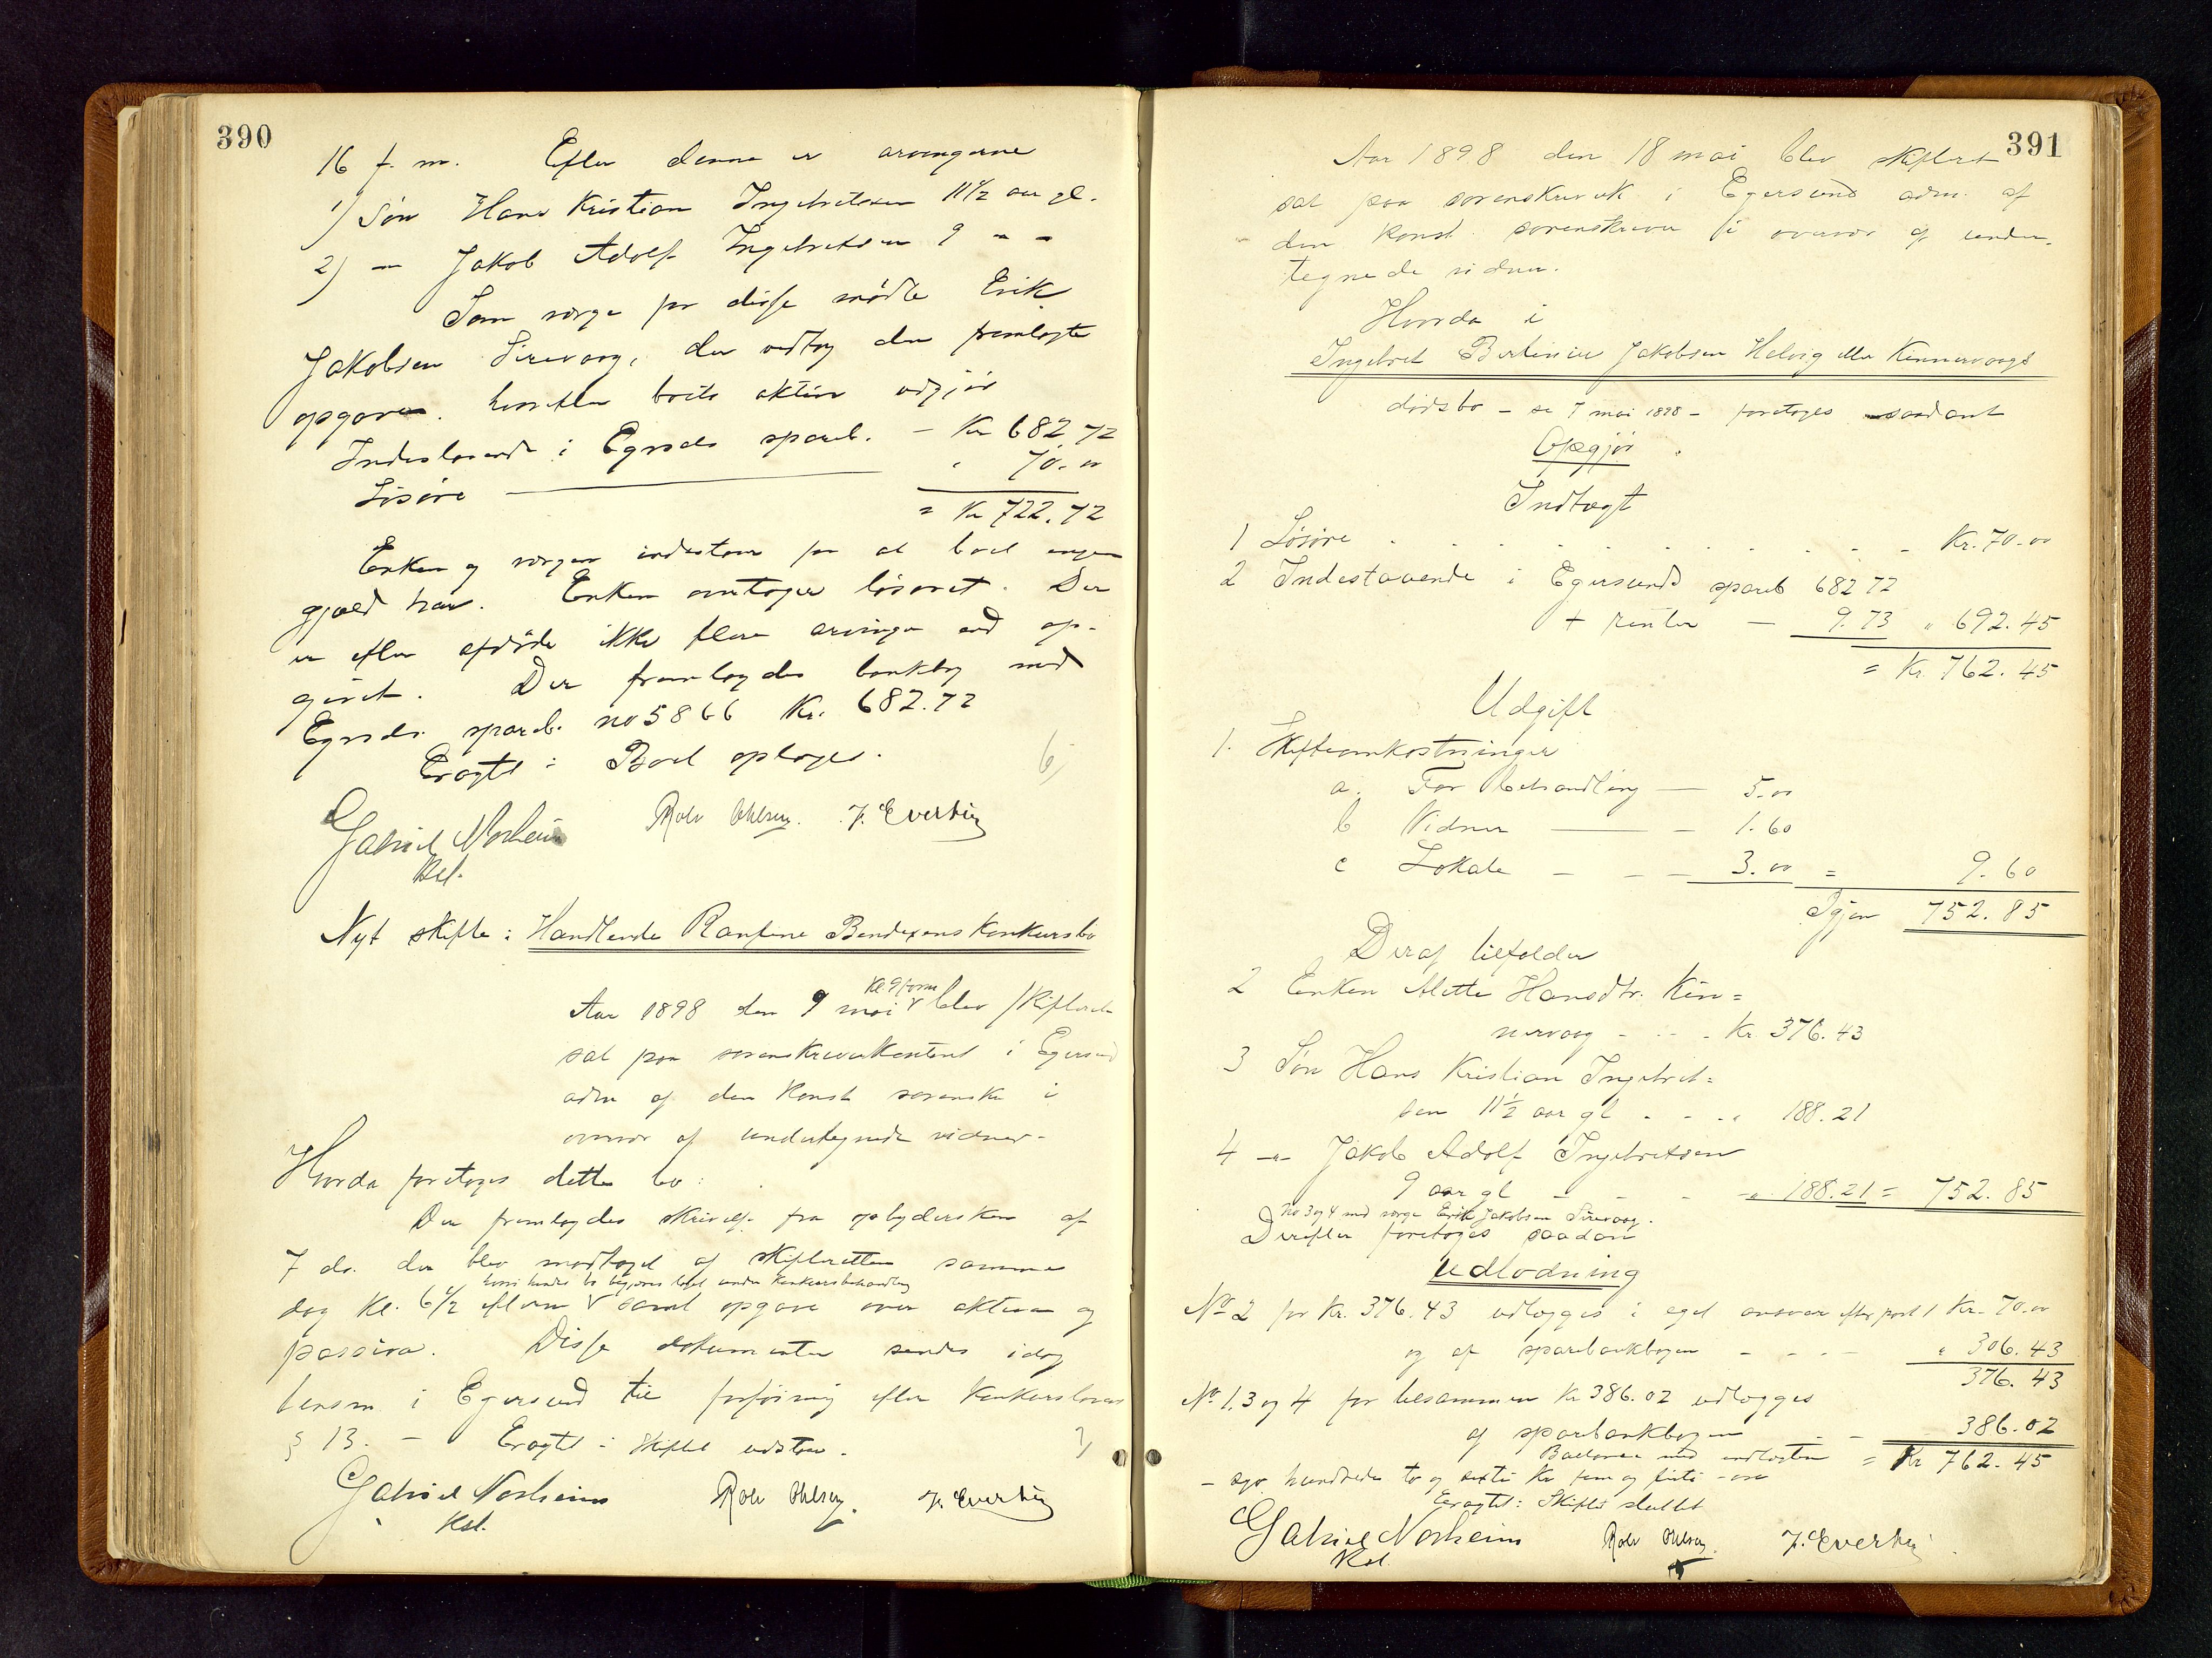 390
16 f. m. Efter denne er arvingerne
1) Søn Hans Kristian Ingebretsen 11 1/2 aar gl.
2) — Jakob Adolf Ingebretsen 9 " "
Som verge for disse mødte Erik
Jakobsen Sirevaag, der vedtog den fremlagte
opgave. hvorefter boets aktiva udgjør
Indestaaende i Egersds spareb. — Kr 682.72
Løsøre — " 70.00
= Kr 722.72
Enken og vergen indestaar for at boet ingen
gjæld har. Enken overtager løsøret. Der
er efter afdøde ikke flere arvinger end op-
givet. Der fremlagdes bankbog med
Egersds spareb. no 5866 Kr. 682.72
Eragtet: Boet optages.
6)
Gabriel Norheim Rolv Ohlsen. J. Evertsen
Kst.
Nyt skifte: Handlende Bendixens konkursbo
Kl. 9 form
Aar 1898 den 9 mai v blev skifteret
sat paa sorenskriverkontoret i Egersund
adm af den konst sorenskr i
overvær af undertegnede vidner.
Hvorda foretoges dette bo:
Der fremlagdes skrivelse fra opbydersken af
7 ds. der blev modtaget af skifteretten samme
hvori hendes bo begjæres taget under konkursbehandling
dag kl. 6 1/2 efterm v samt opgave over aktiva og
passiva. Disse dokumenter sendes idag
lensm. i Egersund til forføining efter konkurslovens
§ 13. — Eragtet: Skiftet udstaar.
Gabriel Norheim Rolv Ohlsen. J. Evertsen
Kst.
391
Aar 1898 den 18 mai blev skifteret
sat paa sorenskriverk i Egersund adm. af
den konst. sorenskriver i overvær af under-
tegnede vidner.
Hvorda i
Ingebret Jakobsen Helvig eller Kinnervaags
dødsbo – se 7 mai 1898 – foretoges saadant
Opgjør.
Indtægt
1 Løsøre . . . Kr. 70.00
2 Indestaaende i Egersunds spareb 682 72
+ renter — 9.73 " 692.45
= Kr. 762.45
Udgift
1. Skifteomkostninger
a. For behandling — 5.00
b Vidner — 1.60
c Lokale — 3.00 = 9.60
Igjen 752.85
Deraf tilfalder
2 Enken Mette Hansdtr. Kin=
nervaag - - - Kr. 376.43
3 Søn Hans Kristian Ingebret=
sen 11 1/2 aar gl . - - " 188.21
4 — Jakob Adolf Ingebretsen
9 aar gl - - - " 188.21 = 752.85
No 3 og 4 med verge Erik Jakobsen Sirevaag.
Derefter foretoges saadan
Udlodning
No 2 for Kr. 376.43 udlægges i eget ansvar efter post 1 Kr. 70.00
og af sparebankbogen - - - " 306.43
376.43
No 1, 3 og 4 for tilsammen Kr 386.02 udlægges
af sparebankbogen . - 386.02
Balance med indtægten = Kr 762.45
– syv hundrede to og sexti Kr fem og firti – øre
Eragtet: Skiftet sluttet
Gabriel Norheim Rolv Ohlsen. J. Evertsen
Kst.